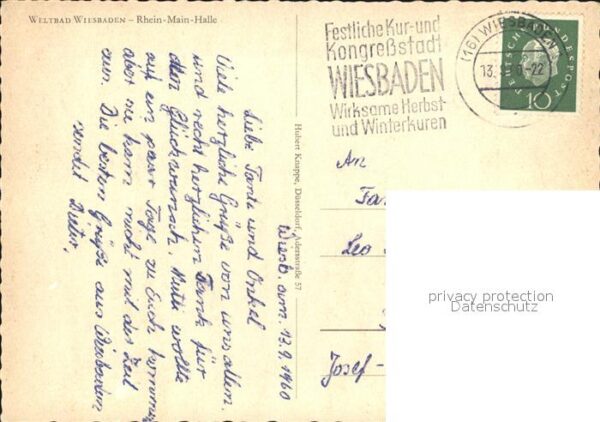 WELTBAD WIESBADEN – Rhein-Main-Halle
Festliche Kur-und
Kongreßstadt
WIESBADEN
Wirksame Herbst-
und Winterkuren
(16) WIESBADEN
13.
-22
DEUTSCHE BUNDESPOST
10
Wiesb. am 13.9.1960
Liebe Tante und Onkel
Viele herzliche Grüße von uns allen.
und recht herzlichen Dank für
den Glückwunsch. Mutti wollte
auf ein paar Tage zu Euch kommen
aber sie kam nicht mit der Zeit
aus. Die besten Grüße aus Wiesbaden
sendet Dieter,
Hubert Knappe, Düsseldorf, Adersstraße 57
An
Fa
Leo
Josef-
privacy protection
Datenschutz